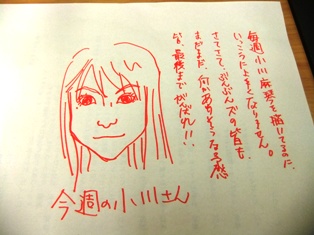 毎週小川麻琴を描いてるのに、
いっこうに上手くなりません。
さてさて、ぶんぶんズの皆も、
まだまだ、何かありそうな予感
皆、最後までがんばれ!!
今週の小川さん